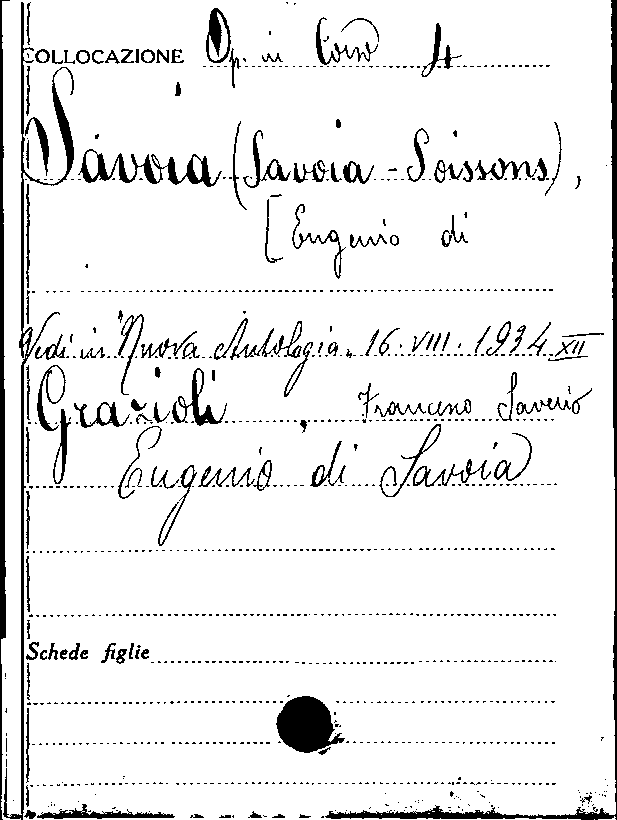 COLLOCAZIONE Op. in Corso 4
Savoia (Savoia - Soissons),
[Eugenio di
Vedi in "Nuova Antologia" 16. VIII. 1934 XII
Grazioli, Francesco Saverio
Eugenio di Savoia
Schede figlie